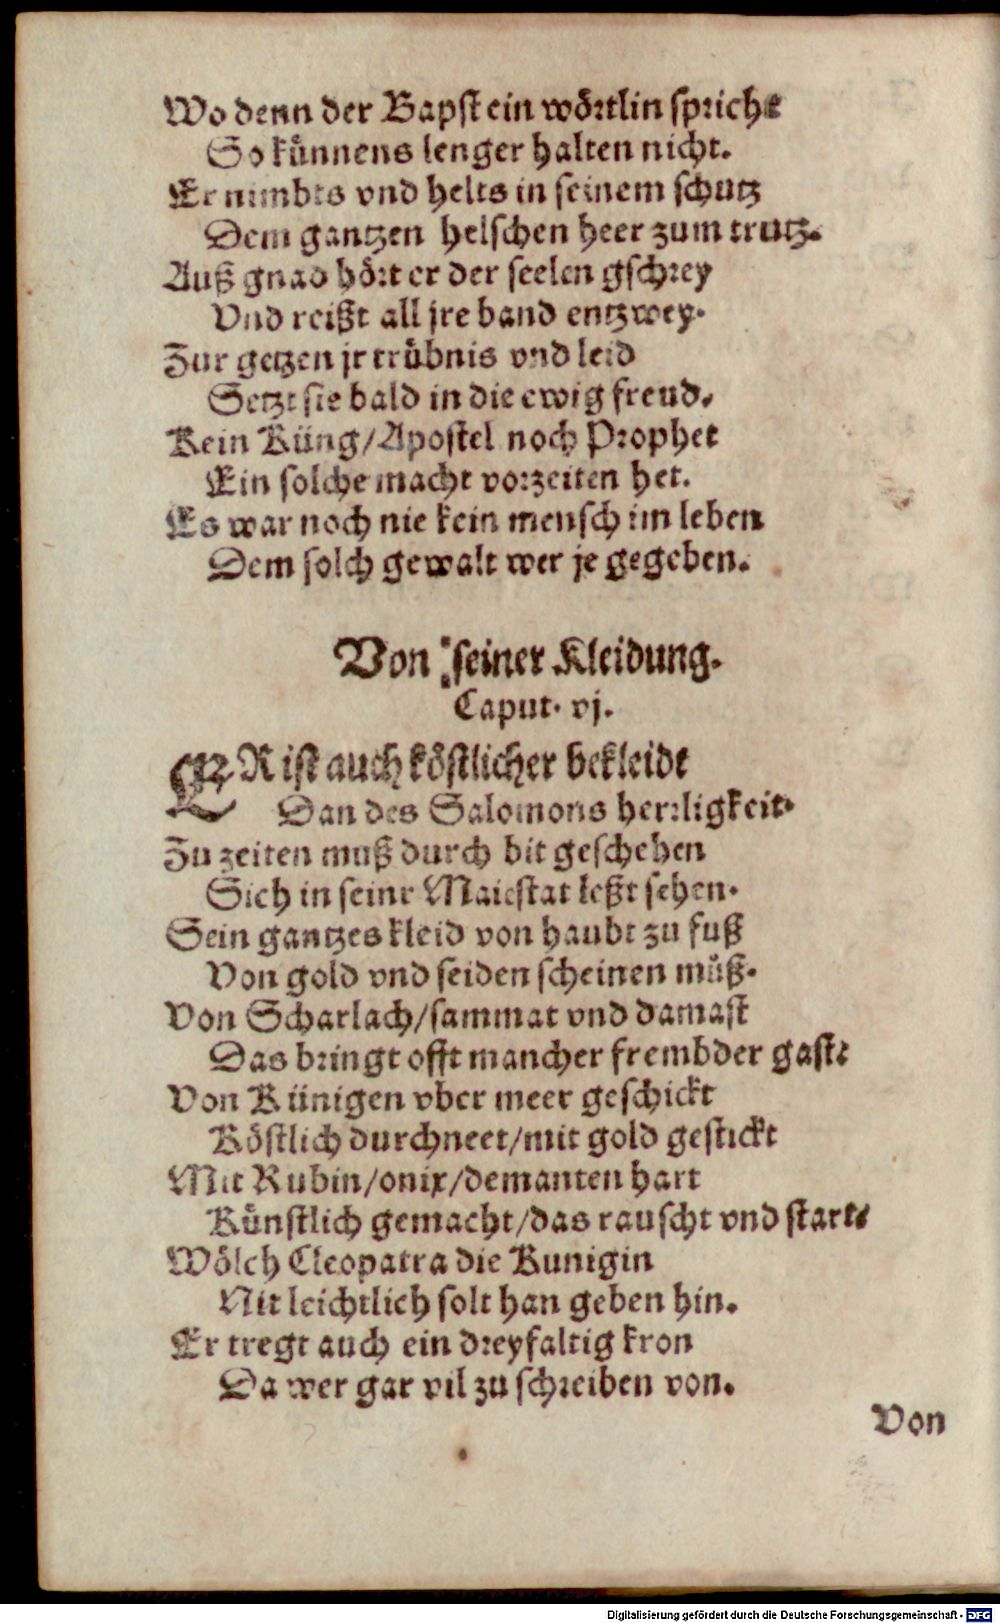 Wo denn der Bapst ein wörtlin spricht
So künnens lenger halten nicht.
Er nimbts vnd helts in seinem schutz
Dem gantzen helschen heer zum trutz.
Auß gnad hört er der seelen gschrey
Vnd reißt all jre band entzwey.
Zur getzen jr trübnis vnd leid
Setzt sie bald in die ewig freud.
Kein Küng/Apostel noch Prophet
Ein solche macht vorzeiten het.
Es war noch nie kein mensch im leben
Dem solch gewalt wer je gegeben.
Von seiner Kleidung.
Caput. vj.
ER ist auch köstlicher bekleidt
Dan des Salomons herrligkeit.
Zu zeiten muß durch bit geschehen
Sich in seinr Maiestat leßt sehen.
Sein gantzes kleid von haubt zu fuß
Von gold vnd seiden scheinen můß.
Von Scharlach/sammat vnd damast
Das bringt offt mancher frembder gast.
Von Künigen vber meer geschickt
Köstlich durchneet/mit gold gestickt
Mit Rubin/onix/demanten hart
Künstlich gemacht/das rauscht vnd start.
Wölch Cleopatra die Kunigin
Nit leichtlich solt han geben hin.
Er tregt auch ein dreyfaltig kron
Da wer gar vil zu schreiben von.
Von
Digitalisierung gefördert durch die Deutsche Forschungsgemeinschaft - DFG